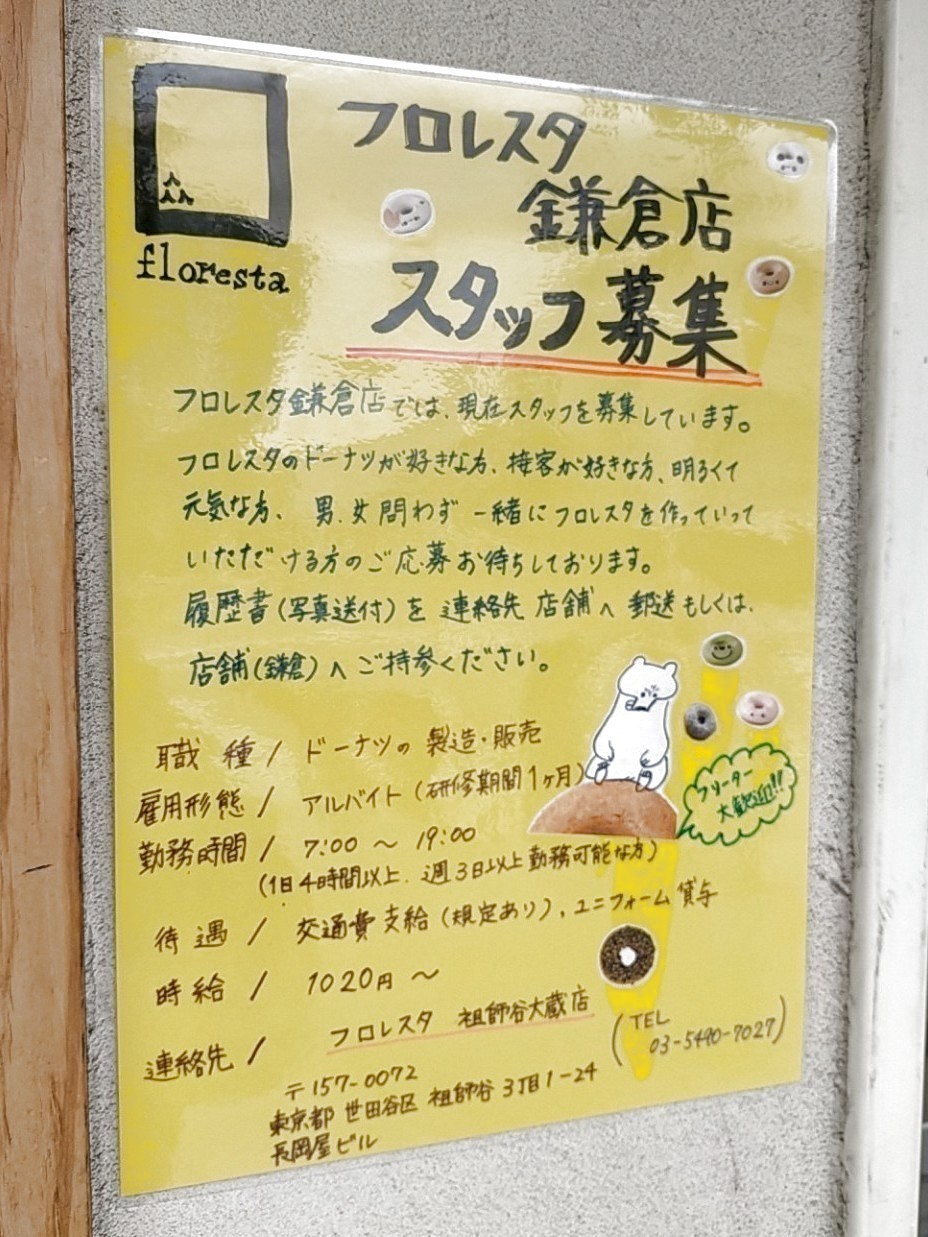 floresta
フロレスタ
鎌倉店
スタッフ募集
フロレスタ鎌倉店では、現在スタッフを募集しています。
フロレスタのドーナツが好きな方、接客が好きな方、明るくて
元気な方、男、女問わず 一緒にフロレスタを作っていって
いただける方のご応募お待ちしております。
履歴書(写真送付)を 連絡先 店舗へ 郵送もしくは、
店舗(鎌倉)へご持参ください。
職種 / ドーナツの 製造・販売
雇用形態 / アルバイト(研修期間1ヶ月)
フリーター
大歓迎!!
勤務時間 / 7:00 〜 19:00
(1日4時間以上、週3日以上勤務可能な方)
待遇 / 交通費支給(規定あり)、ユニフォーム貸与
時給 / 1020円 〜
連絡先 / フロレスタ 祖師谷大蔵店
(TEL
03-5490-7027)
〒157-0072
東京都 世田谷区 祖師谷 3丁目1-24
長岡屋ビル